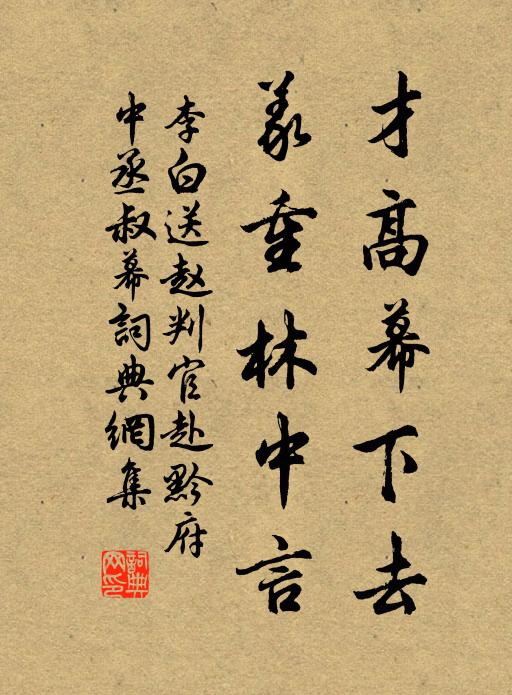 才高幕下去
義重林中言
李白送赵判官赴黔府
中丞叔幕詞典網集
詞典
网印